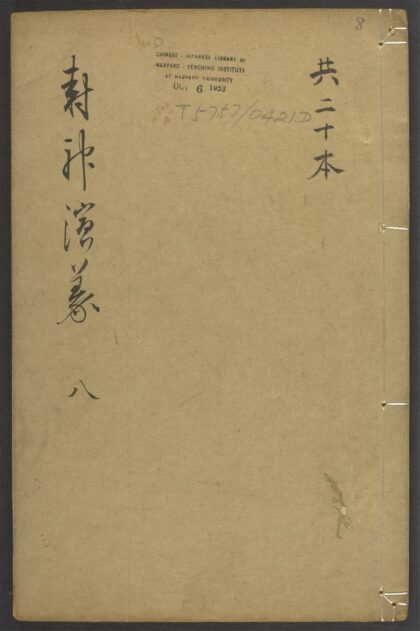 8
共二十本
CHINESE - JAPANESE LIBRARY OF
HARVARD - YENCHING INSTITUTE
AT HARVARD UNIVERSITY
OCT 6 1953
T5757/0421D
封神演義 八